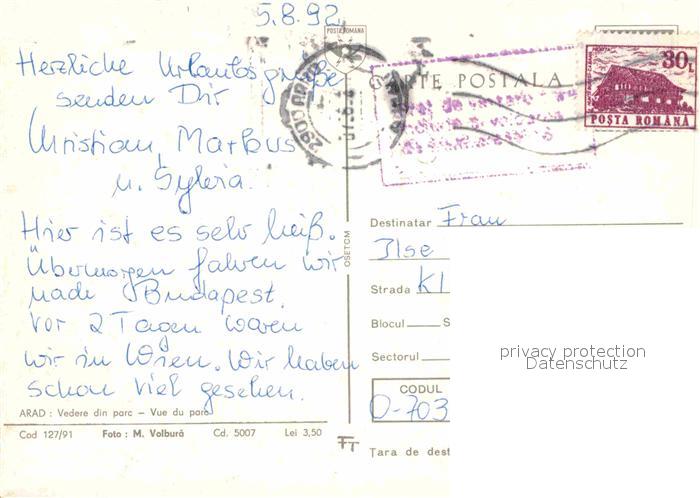 5.8.92
POSTA ROMANA
Herzliche Urlaubsgrüße
senden Dir
Christian, Markus
u. Sylvia.
Hier ist es sehr heiß.
Übermorgen fahren wir
nach Budapest.
Vor 2 Tagen waren
wir in Wien. Wir haben
schon viel gesehen.
ARAD : Vedere din parc – Vue du parc
Cod 127/91 Foto : M. Volbură Cd. 5007 Lei 3,50
OSETCM
CARTE POSTALA
2900 ARAD
30L
POŞTA ROMÂNA
Destinatar Frau
Ilse
Strada Kl
Blocul S
Sectorul
CODUL
D-703
Ţara de dest
privacy protection
Datenschutz